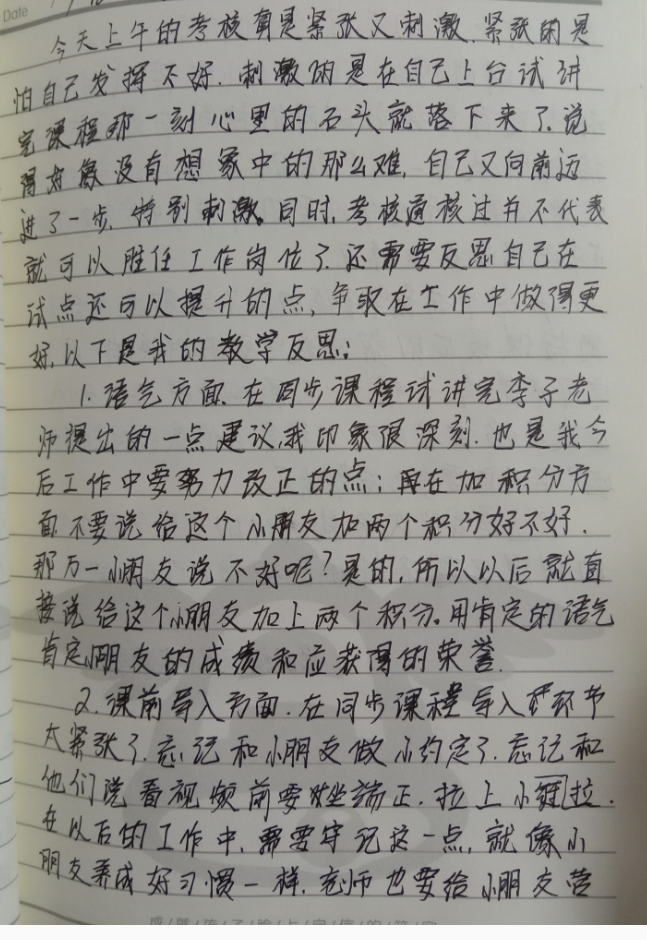 Date
今天上午的考核真是紧张又刺激.紧张的是
怕自己发挥不好.刺激的是在自己上台试讲
完课程那一刻心里的石头就落下来了.觉
得好像没有想象中的那么难,自己又向前迈
进了一步,特别刺激。同时,考核通核过并不代表
就可以胜任工作岗位了.还需要反思自己在
试点还可以提升的点,争取在工作中做得更
好,以下是我的教学反思:
1.语气方面.在同步课程试讲完李子老
师提出的一点建议,我印象很深刻.也是我今
后工作中要努力改正的点;再在加积分方
面不要说给这个小朋友加两个积分好不好.
那万一小朋友说不好呢?是的,所以以后就直
接说给这个小朋友加上两个积分。用肯定的语气
肯定小朋友的成绩和应获得的荣誉.
2.课前导入方面.在同步课程导入环节
太紧张了.忘记和小朋友做小约定了.忘记和
他们说看视频前要坐端正.拉上小链拉.
在以后的工作中,需要牢记这一点,就像小
朋友养成好习惯一样.老师也要给小朋友营